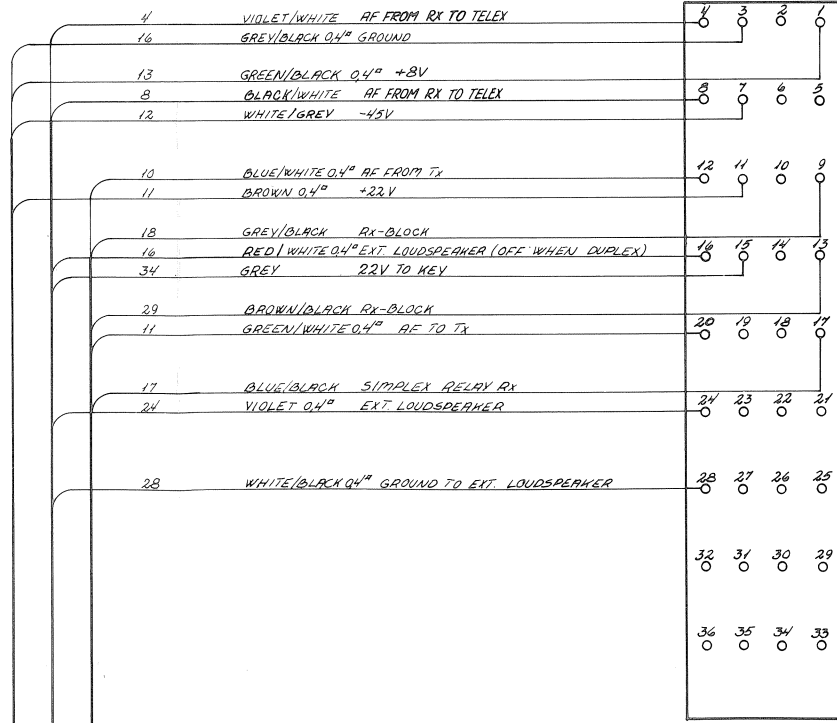 4 VIOLET/WHITE AF FROM RX TO TELEX
16 GREY/BLACK 0,4□ GROUND
4 3 2 1
13 GREEN/BLACK 0,4□ +8V
8 BLACK/WHITE AF FROM RX TO TELEX
12 WHITE/GREY -45V
8 7 6 5
10 BLUE/WHITE 0,4□ AF FROM Tx
11 BROWN 0,4□ +22V
12 11 10 9
18 GREY/BLACK Rx-BLOCK
16 RED/WHITE 0,4□ EXT. LOUDSPEAKER (OFF WHEN DUPLEX)
34 GREY 22V TO KEY
16 15 14 13
29 BROWN/BLACK Rx-BLOCK
11 GREEN/WHITE 0,4□ AF TO Tx
20 19 18 17
17 BLUE/BLACK SIMPLEX RELAY Rx
24 VIOLET 0,4□ EXT. LOUDSPEAKER
24 23 22 21
28 WHITE/BLACK 0,4□ GROUND TO EXT. LOUDSPEAKER
28 27 26 25
32 31 30 29
36 35 34 33